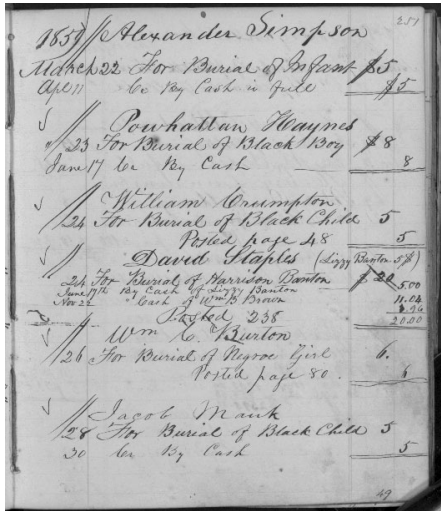 251
1859 // Alexander Simpson
March 22 For Burial of Infant $5
Apl 11 Cr By Cash in full $5
Powhattan Haynes
" 23 For Burial of Black Boy $8
June 17 Cr By Cash 8
William Crumpton
24 For Burial of Black Child 5
Posted page 48 5
David Staples (Lizzy Banton 5$)
24 For Burial of Harrison Banton $20
June 17th By Cash of Lizzy Banton 5.00
Nov 22 " Cash of Wm B Brown 11.04
3.96
Posted 238 20.00
Wm C. Burton
26 For Burial of Negroe Girl 6.
Posted page 80. 6
Jacob Mauk
28 For Burial of Black Child 5
30 Cr By Cash 5
49